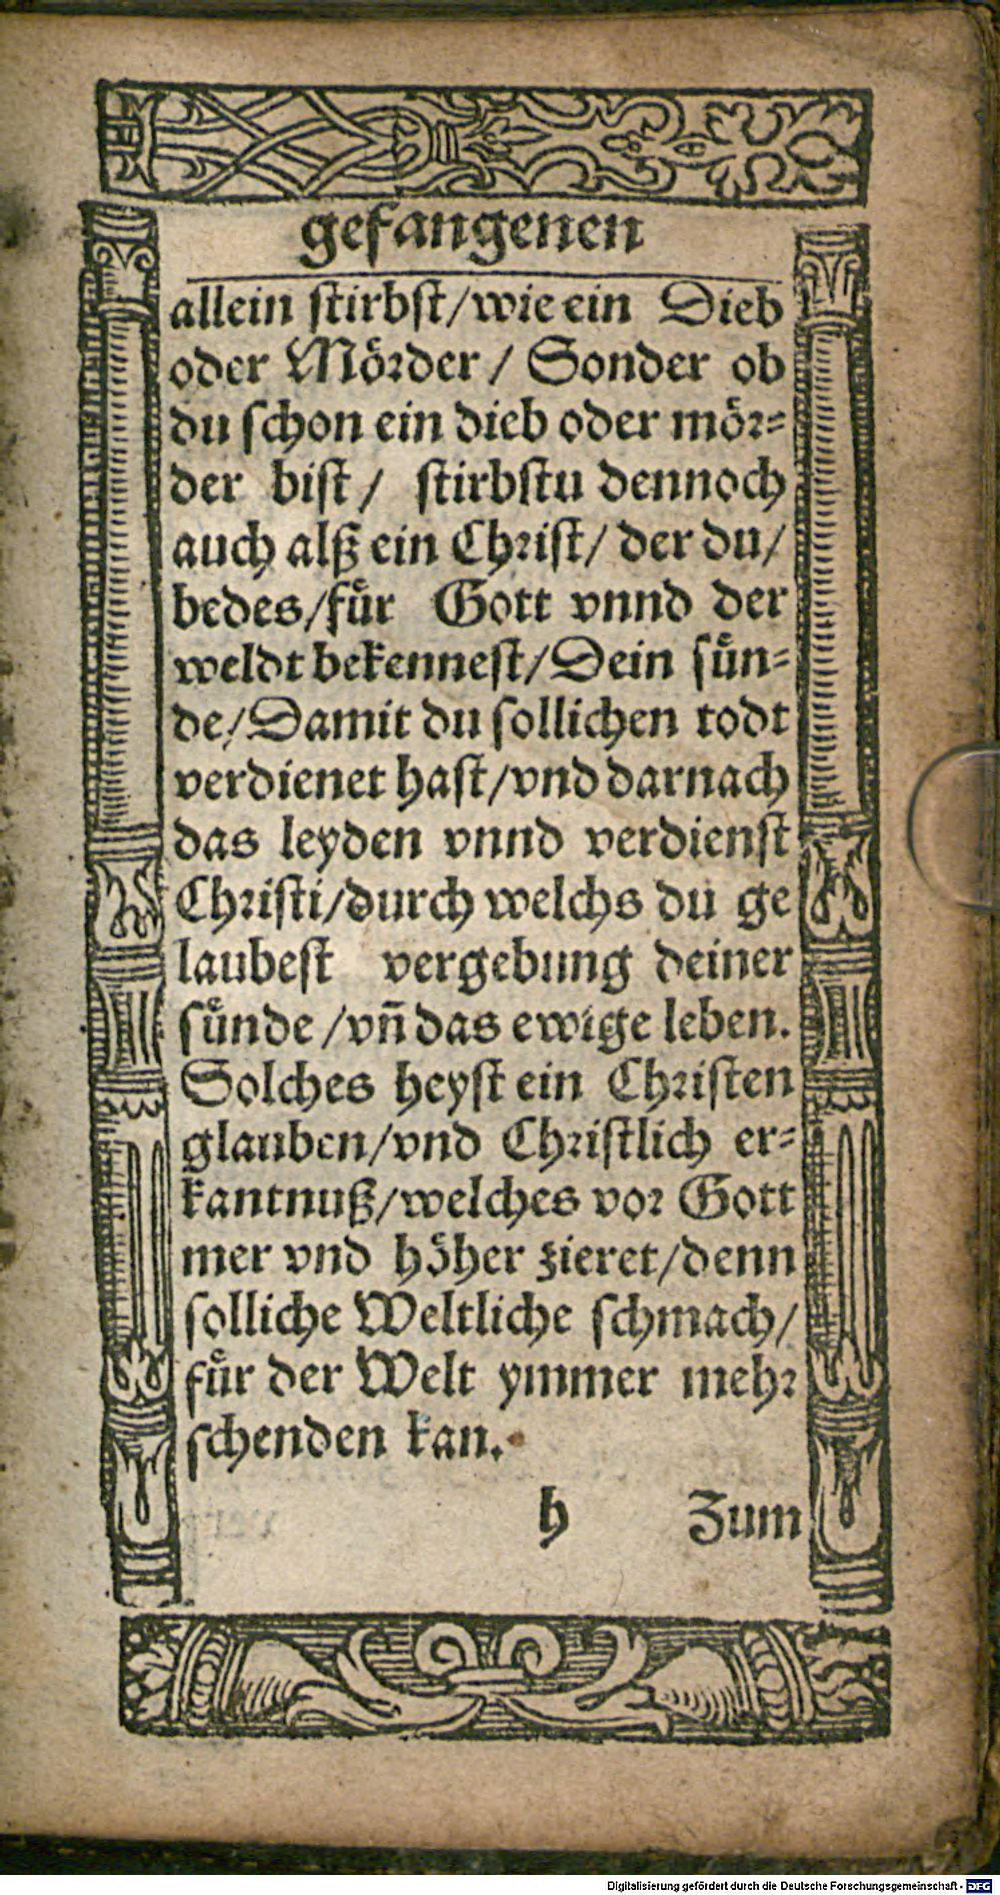 gefangenen
allein stirbst/wie ein Dieb
oder Mörder / Sonder ob
du schon ein dieb oder mör⸗
der bist / stirbstu dennoch
auch alß ein Christ/ der du/
bedes/fuͤr Gott vnnd der
weldt bekennest/Dein suͤn⸗
de/Damit du sollichen todt
verdienet hast/vnd darnach
das leyden vnnd verdienst
Christi/durch welchs du ge
laubest vergebung deiner
suͤnde /vn̄ das ewige leben.
Solches heyst ein Christen
glauben/vnd Christlich er⸗
kantnuß/welches vor Gott
mer vnd höher zieret/denn
solliche Weltliche schmach/
fuͤr der Welt ymmer mehr
schenden kan.
h Zum
Digitalisierung gefördert durch die Deutsche Forschungsgemeinschaft - DFG